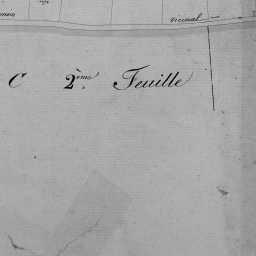 vicinal
C 2ème Feuille